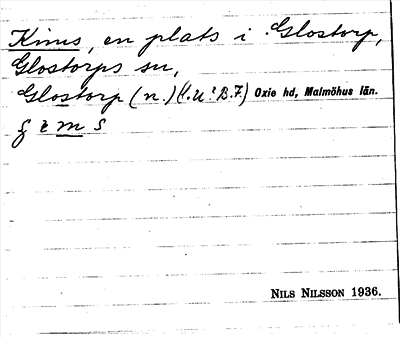 Kims, en plats i Glostorp,
Glostorps sn,
Glostorp (n.) (l.u. B.F.) Oxie hd, Malmöhus län.
Nils Nilsson 1936.